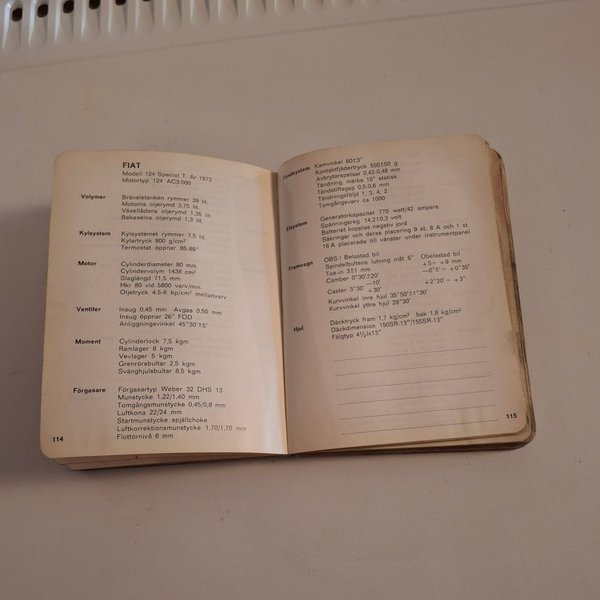 FIAT
Modell 124 Special T. År 1973
Motortyp 124 AC3.000
Volymer Bränsletanken rymmer 39 lit.
Motorns oljerymd 3,75 lit.
Växellådans oljerymd 1,35 lit.
Bakaxelns oljerymd 1,3 lit.
Kylsystem Kylsystemet rymmer 7,5 lit.
Kylartryck 800 g/cm²
Termostat öppnar 85-89°
Motor Cylinderdiameter 80 mm
Cylindervolym 1438 cm³
Slaglängd 71,5 mm
Hkr 80 vid 5800 varv/min.
Oljetryck 4,5-6 kp/cm² mellanvarv
Ventiler Insug 0,45 mm Avgas 0,50 mm
Insug öppnar 26° FÖD
Anliggningsvinkel 45°30'±5'
Moment Cylinderlock 7,5 kgm
Ramlager 8 kgm
Vevlager 5 kgm
Grenrörsbultar 2,5 kgm
Svänghjulsbultar 8,5 kgm
Förgasare Förgasartyp Weber 32 DHS 13
Munstycke 1,22/1,40 mm
Tomgångsmunstycke 0,45/0,8 mm
Luftkona 22/24 mm
Startmunstycke spjällchoke
Luftkorrektionsmunstycke 1,70/1,70 mm
Flottörnivå 6 mm
114
Tändsystem Kamvinkel 60±3°
Kontaktfjädertryck 550±50 g
Avbrytarspetsar 0,42-0,48 mm
Tändning, märke 10° statisk
Tändstiftsgap 0,5-0,6 mm
Tändningsföljd 1, 3, 4, 2
Tomgångsvarv ca 1000
Elsystem Generatorkapacitet 770 watt/42 ampere
Spänningsreg. 14,2±0,3 volt
Batteriet kopplas negativ jord
Säkringar och deras placering 9 st. 8 A och 1 st.
16 A placerade till vänster under instrumentpanel
Framvagn OBS.! Belastad bil Obelastad bil
Spindelbultens lutning inåt 6°
Toe-in 3±1 mm +5÷+9 mm
Camber 0°30'±20' —0°5'÷+0°35'
Caster 3°30' —10' +30' +2°20'÷+3°
Kurvvinkel inre hjul 35°50'±1°30'
Kurvvinkel yttre hjul 28°30'
Hjul Däcktryck fram 1,7 kg/cm² bak 1,8 kg/cm²
Däckdimension 150SR-13"/155SR-13"
Fälgtyp 4½Jx13"
115